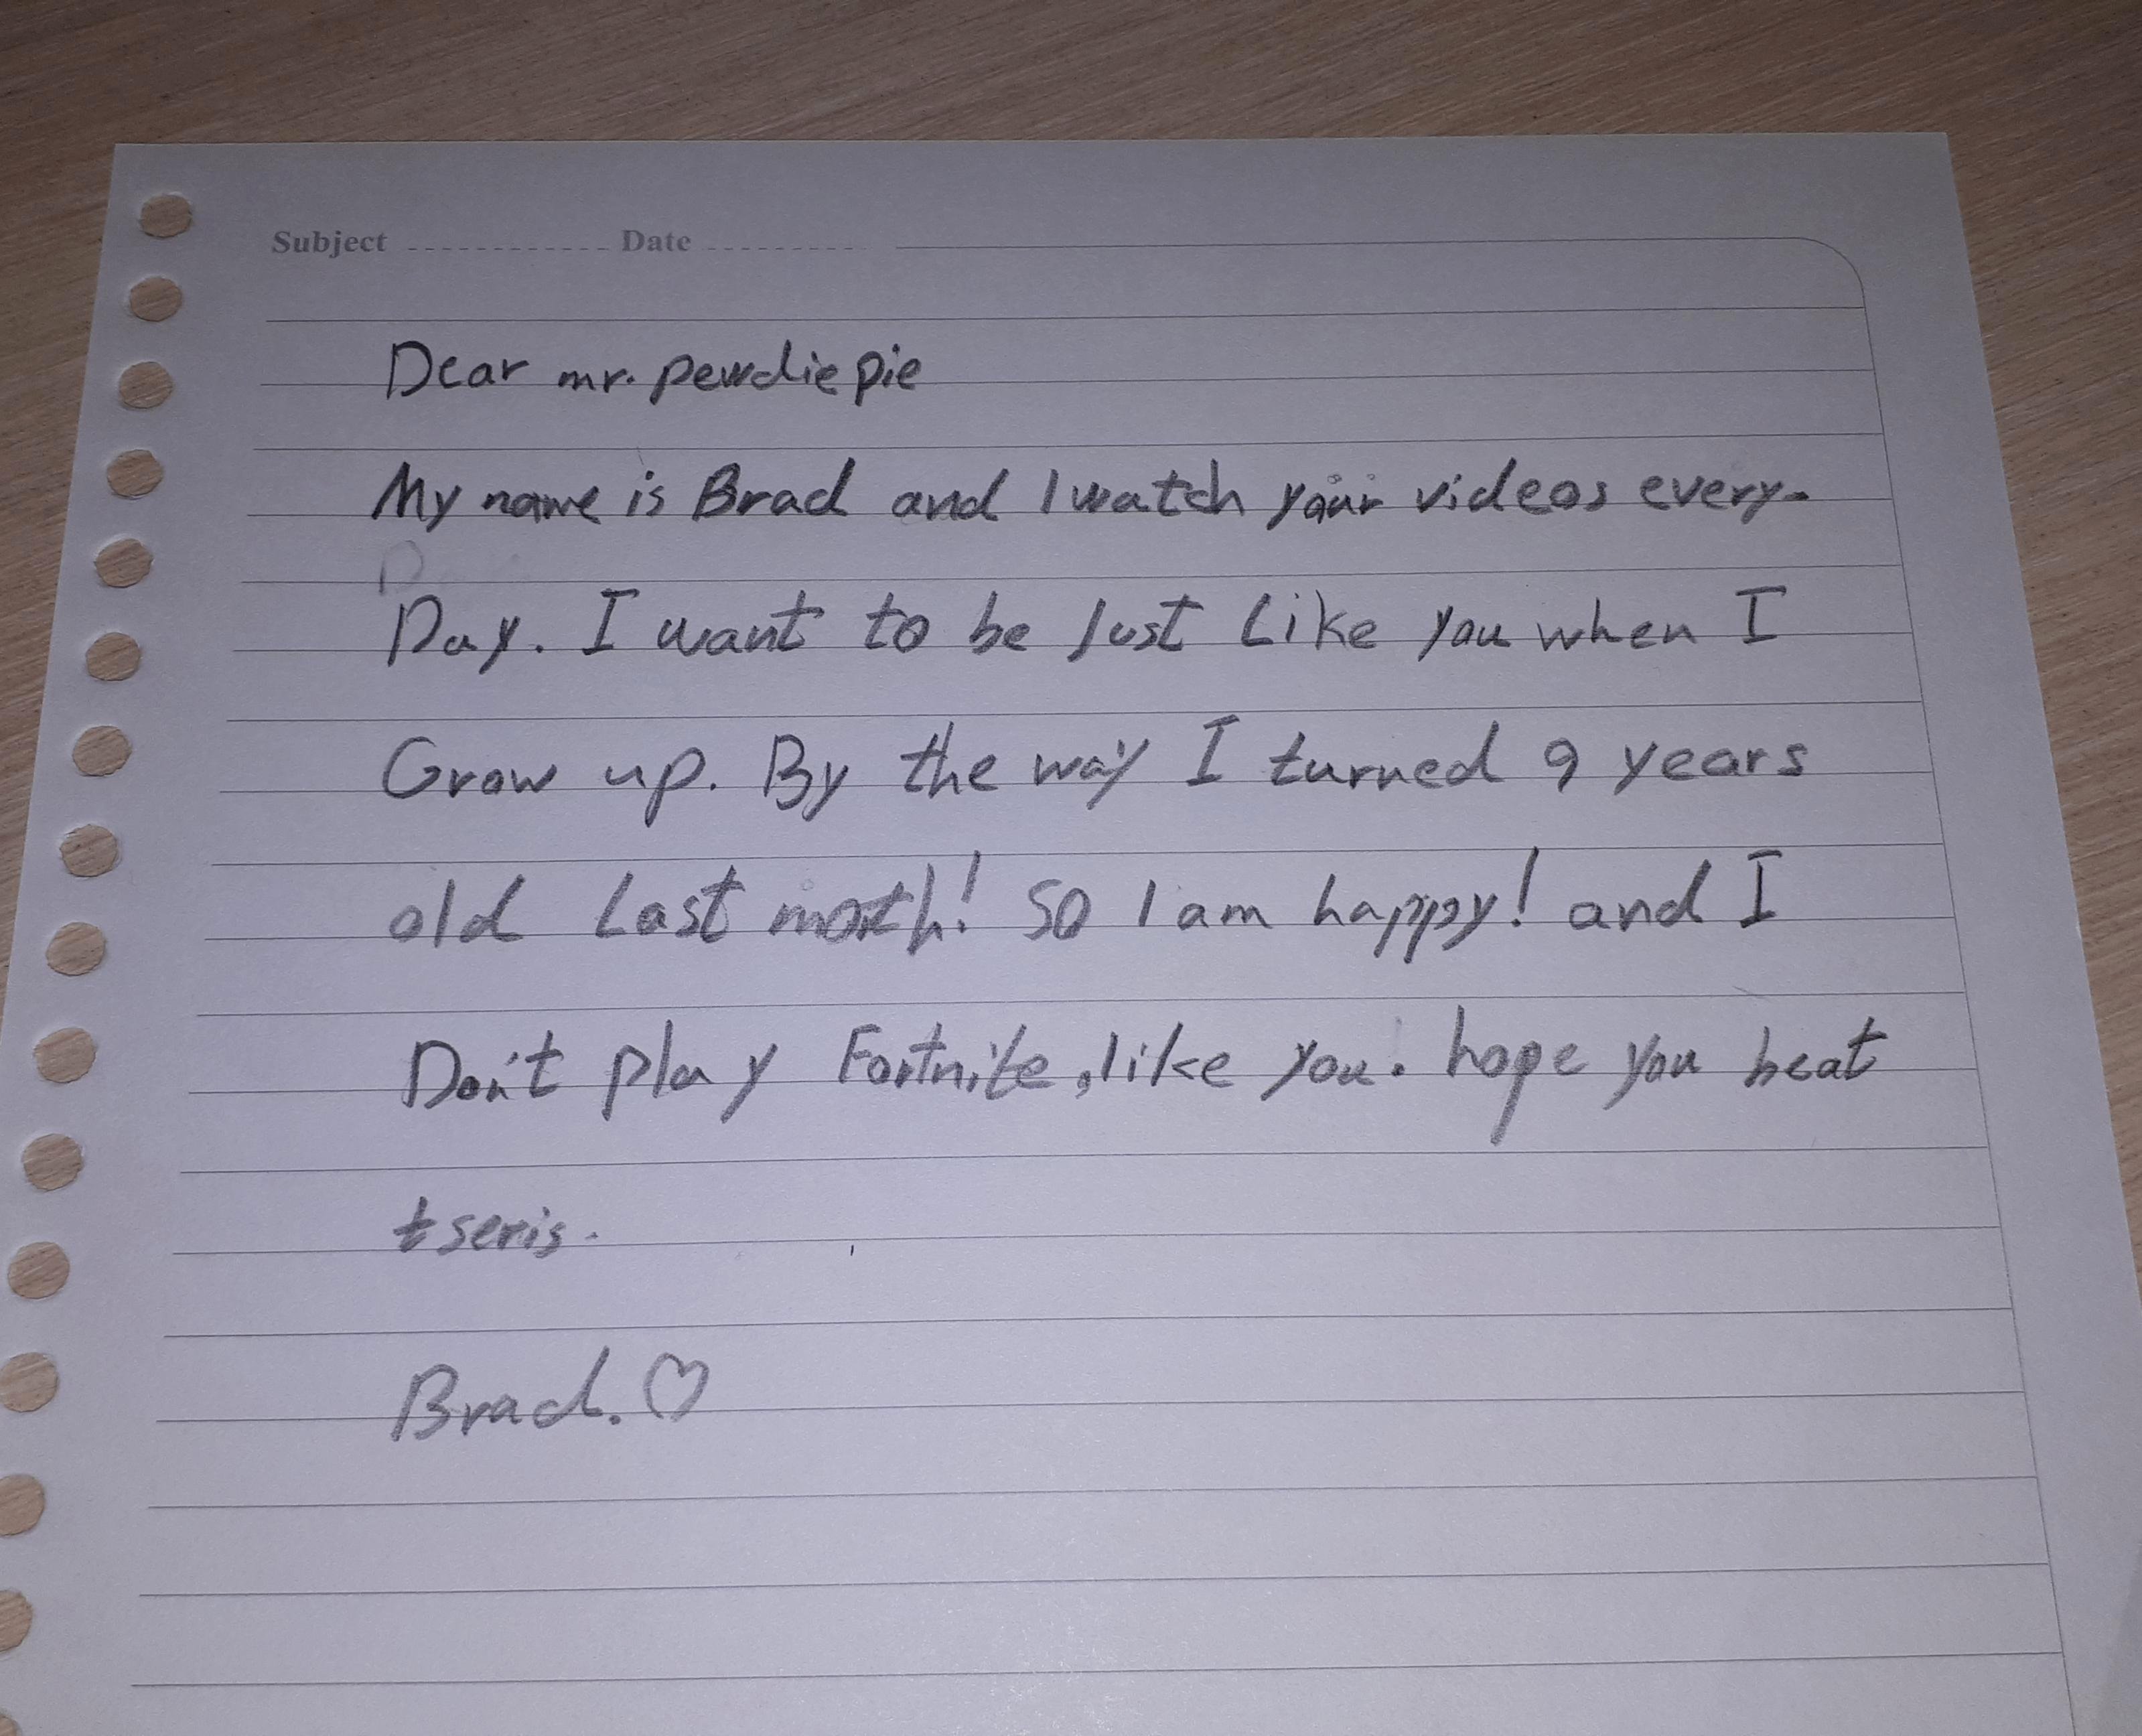 Subject Date
Dear mr. pewdiepie
My name is Brad and I watch your videos every-
Day. I want to be Just Like you when I
Grow up. By the way I turned 9 years
old Last month! So I am happy! and I
Don't play Fortnite, like you. hope you beat
t seris.
Brad. ♡